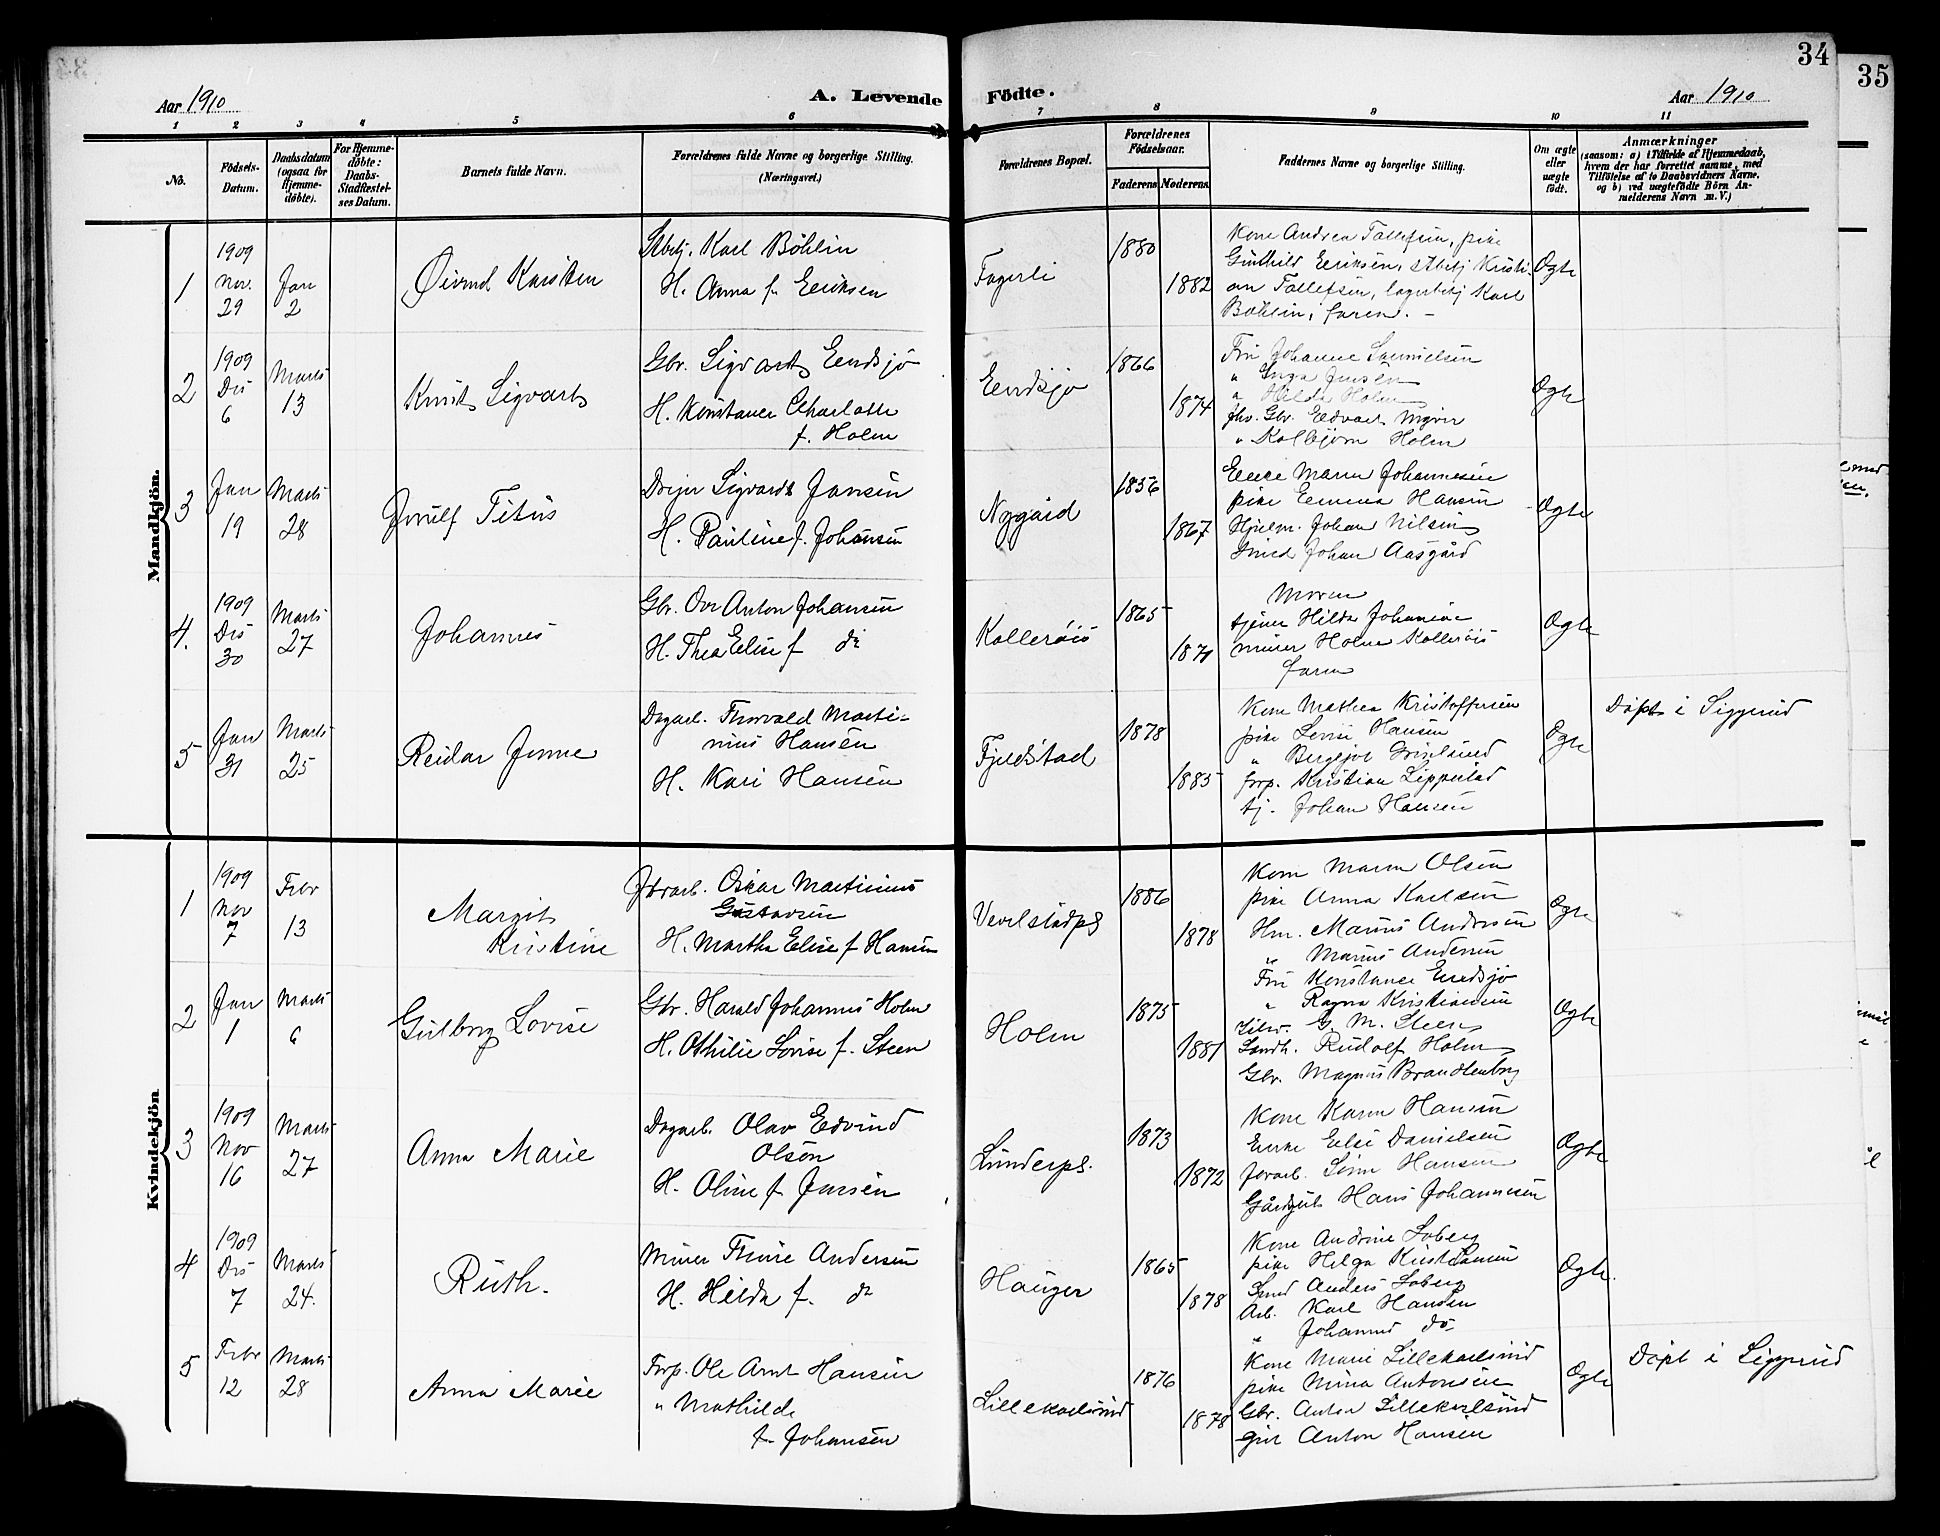 34
35
Aar 1910
A. Levende Födte.
Aar 1910
1 2 3 4 5 6 7 8 9 10 11
No.
Födsels-Datum.
Daabsdatum (ogsaa for Hjemme-döbte).
For Hjemme-döbte: Daabs-Stadfæstel-ses Datum.
Barnets fulde Navn.
Forældrenes fulde Navne og borgerlige Stilling.
(Næringsvei.)
Forældrenes Bopæl.
Forældrenes Födselsaar.
Faderens Moderens
Faddernes Navne og borgerlige Stilling.
Om ægte eller uægte födt.
Anmærkninger
(saasom: a) i Tilfælde af Hjemmedaab,
hvem der har forrettet samme, med
Tilföielse af to Daabsvidners Navne,
og b) ved uægtefödte Börn An-
melderens Navn m. V.)
Mandkjön.
1
1909 Nov. 29
Jan 2
Øivind Karsten
Karl Böhlin
H. Anna f. Eriksen
Fagerli
1880
1882
Kone Andrea Tollefsen, pike
Gunhild Eriksen, Kristi-
an Tollefsen, Karl
Böhlin, faren. -
Ægte
2
1909 Des 6
Marts 13
Knut Sigvart
Gbr. Sigvart Endsjö
H. Konstance Charlotte
f. Holm
Endsjö
1866
1874
Fru Johanne
" Inga Jensen
" Hilda Holm
Gbr. Edvart
" Kolbjörn Holm
Ægte
3
Jan 19
Marts 28
Jorulf Titus
Sigvardt Jansen
H. Pauline f. Johansen
Nygård
1856
1867
Enke Maren Johannesen
pike Emma Hansen
Johan Nilsen
Smed Johan Aasgård
Ægte
4.
1909 Des 30
Marts 27
Johannes
Gbr. Ove Anton Johansen
H. Thea Elise f do
Kolleröis
1865
1871
Moren
tjener Hilda Johansen
murer Holm Kolleröis
faren
Ægte
5
Jan 31
Marts 25
Reidar Jonne
Dagarb. Thorvald Marti-
nius Hansen
H. Kari Hansen
Fjeldstad
1878
1885
Kone Mathea Kristoffersen
pike Hansen
" Bergljot
forp. Kristian
tj. Johan Hansen
Ægte
Döpt i Siggerud
Kvindekjön
1
1909 Nov 7
Febr 13
Margit
Kristine
Jbarb. Oskar Martinius
Gustavsen
H. Martha Elise f Hansen
Vevelstadpl
1886
1878
Kone Maren Olsen
pike Anna Karlsen
Hm. Andersen
" Marius Andersen
Ægte
2
Jan 1
Marts 6
Gulborg Lovise
Gbr. Harald Johannes Holm
H. Othilie Lovise f. Steen
Holm
1875
1881
Fru Konstance Endsjö
" Ragna Kristiansen
G. M. Steen
Landh. Rudolf Holm
Gbr. Magnus Brandtenborg
Ægte
3
1909 Nov 16
Marts 27
Anna Marie
Dagarb. Olav Edvind
Olsen
H. Oline f Jensen
Lunderpl.
1873
1872
Kone Karen Hansen
Enke Else Danielsen
Jbarb. Hansen
Gårdgut Hans Johannesen
Ægte
4
1909 Des 7
Marts 24.
Ruth.
Murer Thure Andersen
H. Hilda f. do
Hauger
1865
1878
Kone Andrine Soberg
pike Helga Kristiansen
Smed Anders Soberg
Arb. Karl Hansen
" Johannes do
Ægte.
5
Febr 12
Marts 28
Anna Marie
Forp. Ole Arnt Hansen
" Mathilde
f. Johansen
Lillekarlsrud
1876
1878
Kone Marie Lillekarlsrud
pike Mina Antonsen
Gbr. Anton Lillekarlsrud
gut Anton Hansen
Ægte
Döpt i Siggerud